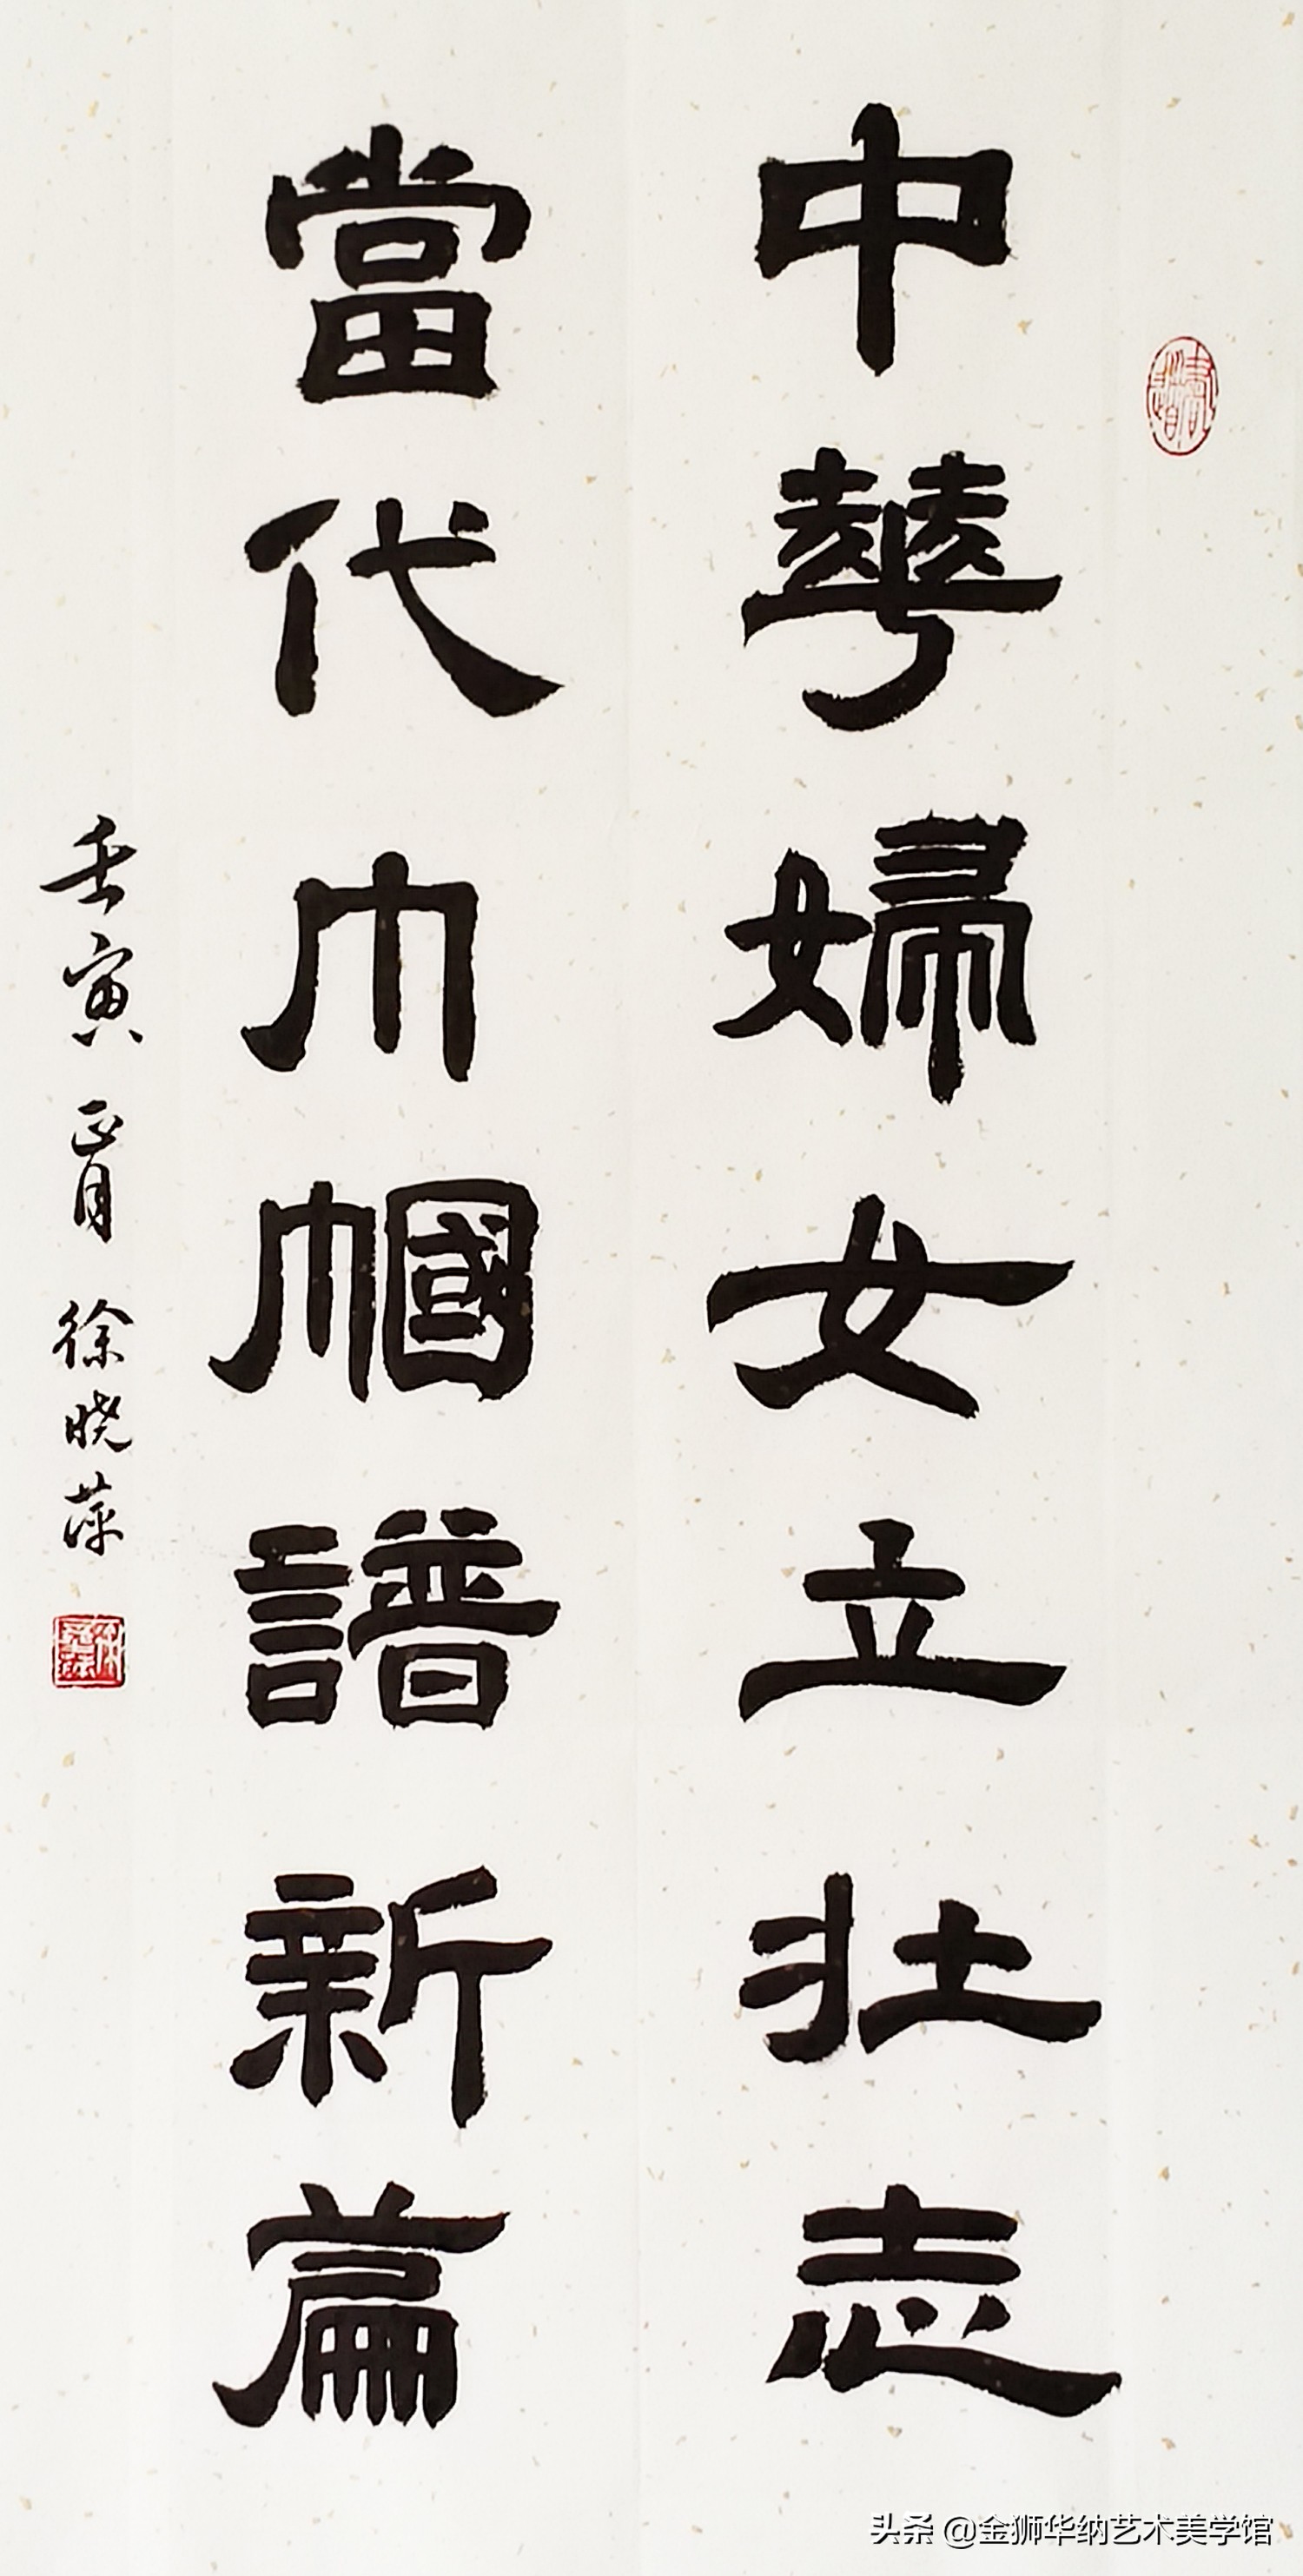 中華婦女立壯志
當代巾幗譜新篇
壬寅正月 徐晓萍
头条 @金狮华纳艺术美学馆